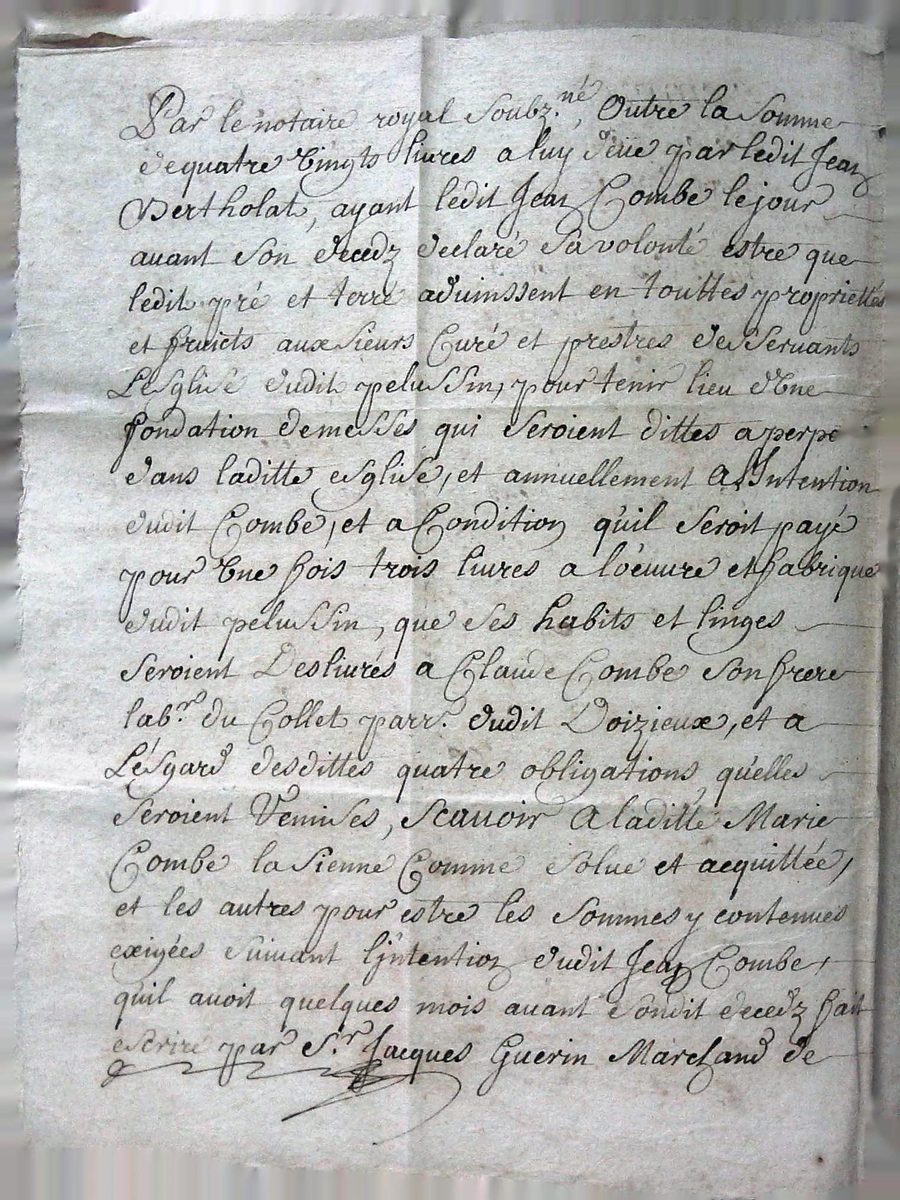 Par le notaire royal Soubz.né, Outre la Somme
de quatre Vingts livres a luy deüe par ledit Jean
Bertholat, ayant ledit Jean Combe le jour
auant Son decedz declaré Sa volonté estre que
ledit pré et terre aduinssent en touttes proprietés
et fruicts aux Sieurs Curé et prestres desseruants
L'esglise dudit pelussin, pour tenir lieu d'Vne
fondation de messes qui Seroient dittes a perpe
dans laditte esglise, et annuellement a L'Intention
dudit Combe, et a Condition qu'il Seroit payé
pour Vne fois trois liures a l'oeuure et fabrique
dudit pelussin, que Ses habits et linges
Seroient Desliurés a Claude Combe Son frere
lab.r du Collet parr. dudit Doizieux, et a
L'ésgard desdittes quatre obligations, qu'elles
Seroient Remises, Scauoir A laditte Marie
Combe la Sienne Comme Solue et acquittée,
et les autres pour estre les Sommes y contenues
exigées Suiuant l'jntention dudit Jean Combe,
qu'il auoit quelques mois auant Sondit decedz fait
escrire par S.r Jacques Guerin Marchand de